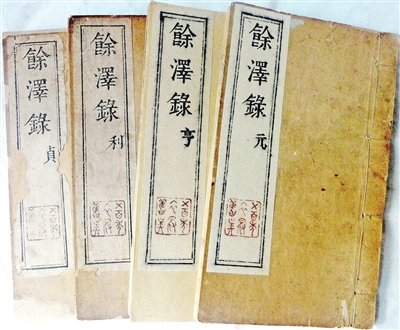 餘澤錄
貞
餘澤錄
利
餘澤錄
亨
餘澤錄
元